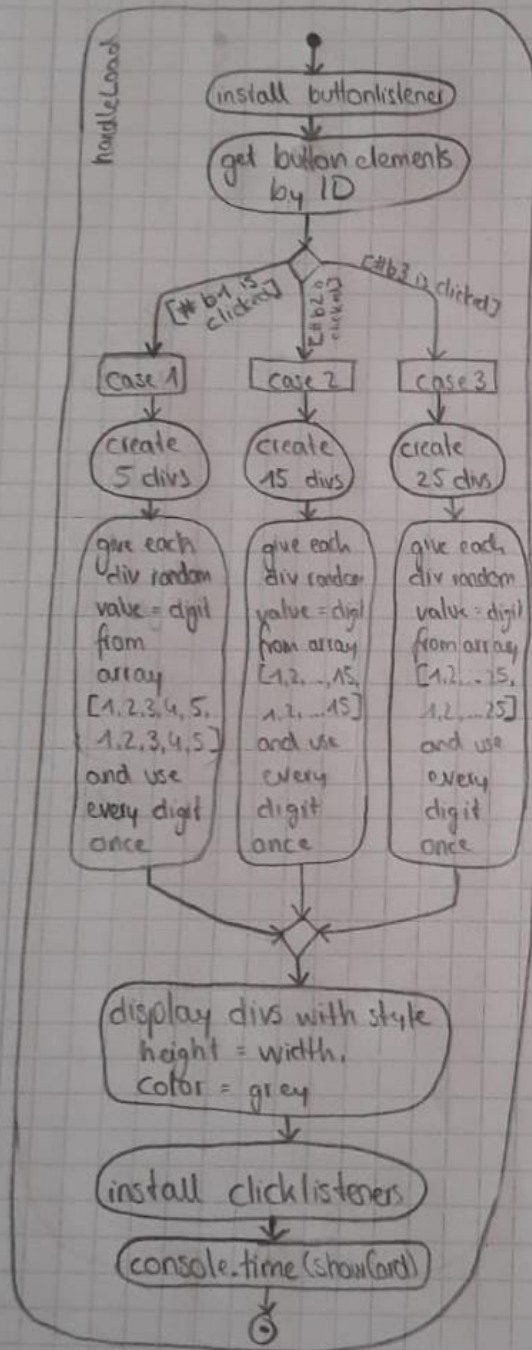 handleLoad
install buttonlistener
get button elements
by ID
[#b1 is
clicked]
[#b2 is
clicked]
[#b3 is clicked]
case 1
case 2
case 3
create
5 divs
create
15 divs
create
25 divs
give each
div random
value = digit
from
array
[1,2,3,4,5,
1,2,3,4,5]
and use
every digit
once
give each
div random
value = digit
from array
[1,2...,15,
1,2,...15]
and use
every
digit
once
give each
div random
value = digit
from array
[1,2...25,
1,2,...25]
and use
every
digit
once
display divs with style
height = width.
color = grey
install clicklisteners
console.time(showCard)